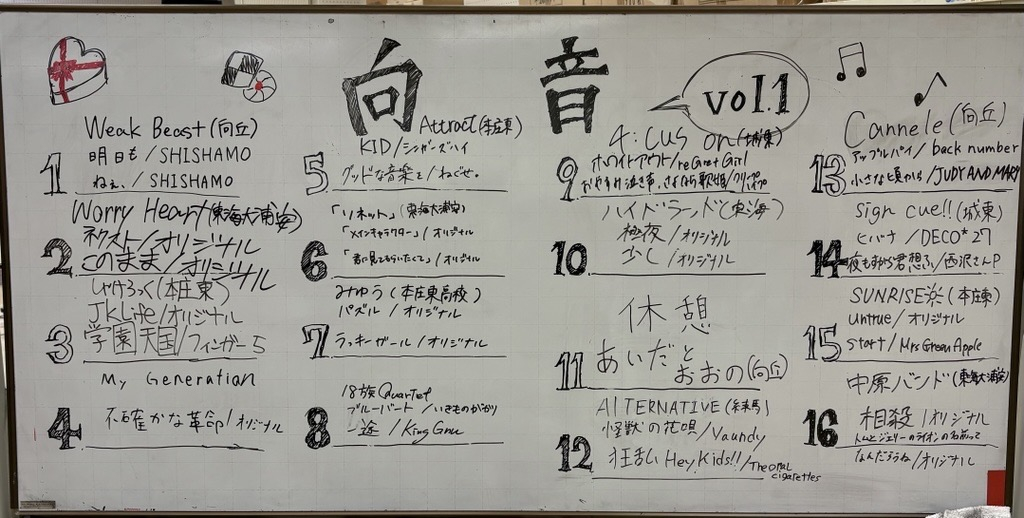 向音
vol.1
1
Weak Beast (向丘)
明日も / SHISHAMO
ねぇ、/ SHISHAMO
2
Worry Heart (東海大浦安)
ネクスト / オリジナル
このまま / オリジナル
3
しけろっく (本庄東)
JK Life / オリジナル
学園天国 / フィンガー5
4
My Generation
不確かな革命 / オリジナル
5
Attract (本庄東)
KID / シンガーズハイ
グッドな音楽を / ねぐせ。
6
「リネット」(東海大浦安)
「メインキャラクター」/ オリジナル
「君に見てもらいたくて」/ オリジナル
7
みゆう (本庄東高校)
パズル / オリジナル
ラッキーガール / オリジナル
8
18族 Quartet
ブルーバード / いきものがかり
一途 / King Gnu
9
4:cus on (城東)
ホワイトアウト / reGretGirl
おやすみ泣き声、さよなら歌姫 / クリープハイプ
10
ハイドランド (東海)
極夜 / オリジナル
少し / オリジナル
休憩
11
あいだと
おおの (向丘)
12
AlTERNATIVE (練馬)
怪獣の花唄 / Vaundy
狂乱 Hey Kids!! / The oral
cigarettes
13
Cannele (向丘)
アップルパイ / back number
小さな頃から / JUDY AND MARY
14
sign cue!! (城東)
ヒバナ / DECO*27
夜もすがら君想ふ / 西沢さんP
15
SUNRISE※ (本庄東)
untrue / オリジナル
start / Mrs Green Apple
16
中原バンド (東海大浦安)
相殺 / オリジナル
トムとジェリーのライオンの名前って
なんだろうね / オリジナル